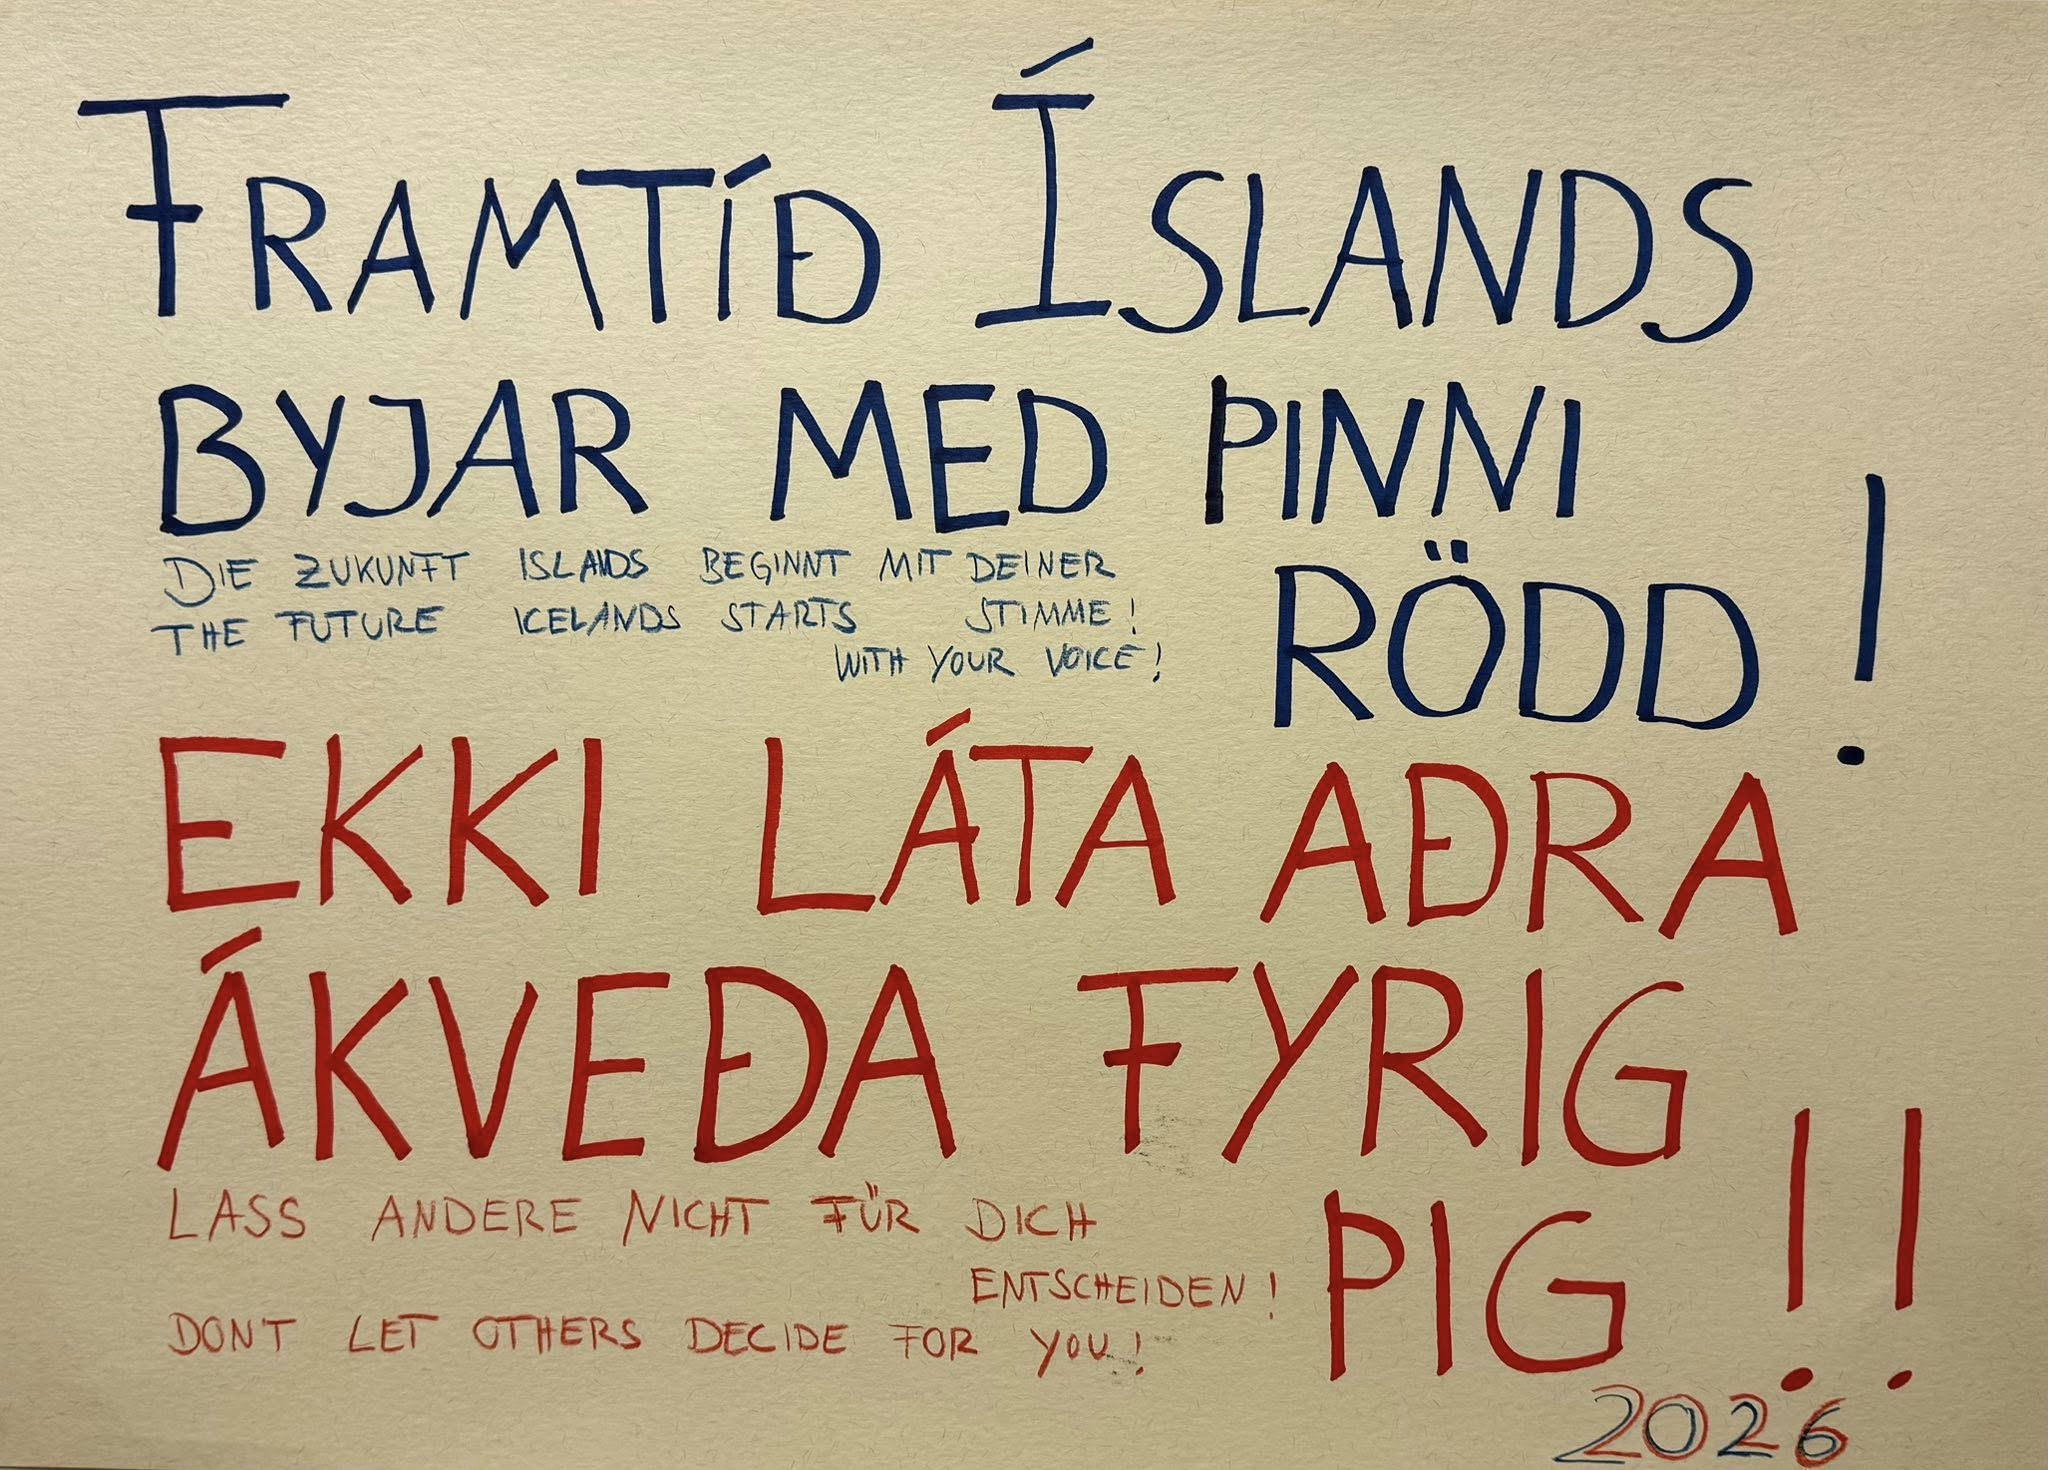 FRAMTÍÐ ÍSLANDS
BYJAR MED ÞINNI
RÖDD!
DIE ZUKUNFT ISLANDS BEGINNT MIT DEINER
STIMME!
THE FUTURE ICELANDS STARTS
WITH YOUR VOICE!
EKKI LÁTA AÐRA
ÁKVEÐA FYRIG
ÞIG!!
LASS ANDERE NICHT FÜR DICH
ENTSCHEIDEN!
DONT LET OTHERS DECIDE FOR YOU!
2026